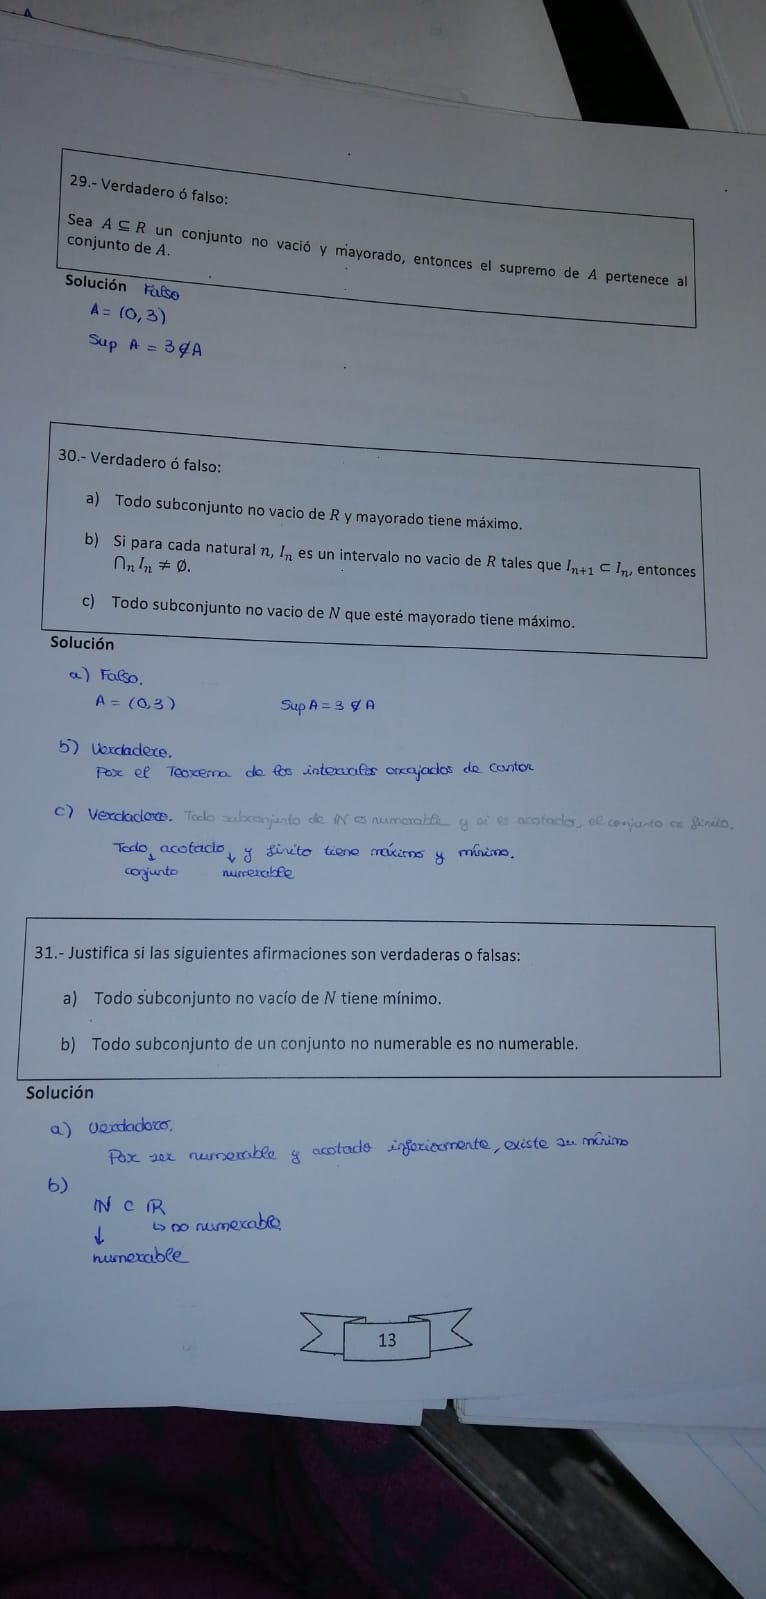 29.- Verdadero ó falso:
Sea A ⊆ R un conjunto no vació y mayorado, entonces el supremo de A pertenece al
conjunto de A.
Solución Falso
A = (0,3)
Sup A = 3 ∉ A
30.- Verdadero ó falso:
a) Todo subconjunto no vacio de R y mayorado tiene máximo.
b) Si para cada natural n, Iₙ es un intervalo no vacio de R tales que Iₙ₊₁ ⊂ Iₙ, entonces
⋂ₙ Iₙ ≠ ∅.
c) Todo subconjunto no vacio de N que esté mayorado tiene máximo.
Solución
a) Falso.
A = (0,3) Sup A = 3 ∉ A
b) Verdadero.
Por el Teorema de los intervalos encajados de Cantor
c) Verdadero. Todo subconjunto de ℕ es numerable y si es acotado, el conjunto es finito.
Todo acotado y finito tiene máximo y mínimo.
↓ conjunto ↓ numerable
31.- Justifica si las siguientes afirmaciones son verdaderas o falsas:
a) Todo subconjunto no vacío de N tiene mínimo.
b) Todo subconjunto de un conjunto no numerable es no numerable.
Solución
a) Verdadero.
Por ser numerable y acotado inferiormente, existe su mínimo
b)
ℕ ⊂ ℝ
↓ ↳ no numerable
numerable
13